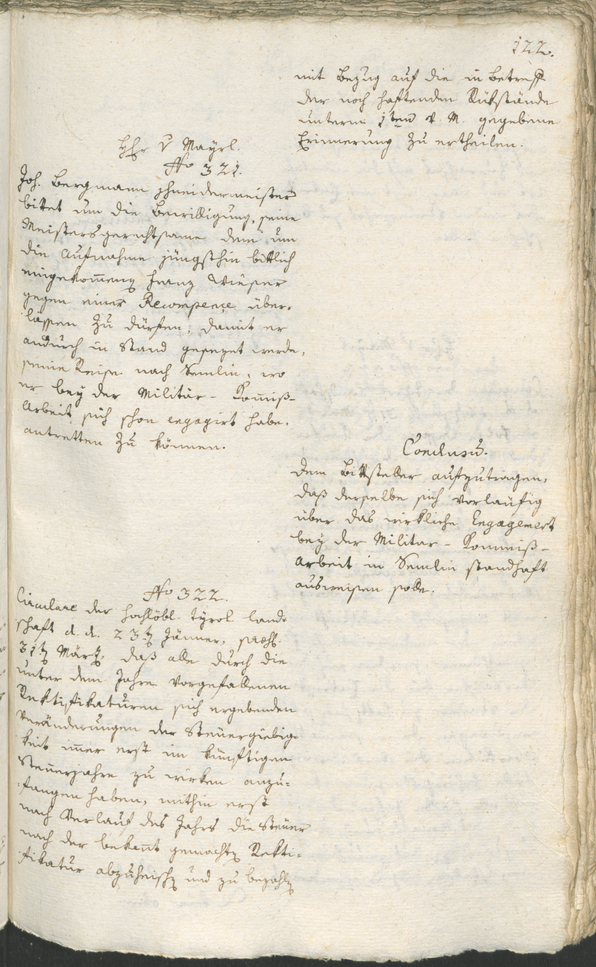 122.
mit Bezug auf die in Betreff
der noch haftenden Rükstände
unterm 1ten d. M. gegebene
Erinnerung zu ertheilen.
Hr. v Mayrl.
No 321.
Joh. Bergmann Schneidermeister
bittet um die Bewilligung, seine
Meistersgerechtsame dem um
die Aufnahme jüngsthin bittlich
eingekomenen Franz Wieser
gegen einer Recompence über-
lassen zu dürfen, damit er
andurch in Stand gesezet werde,
seine Reise nach Semlin, wo
er bey der Militär-Komiß-
Arbeit sich schon engagirt habe,
antretten zu können.
Conclusũ.
Dem Bittsteller aufzutragen,
daß derselbe sich vorläufig
über das wirkliche Engagement
bey der Militar-Kommiß-
Arbeit in Semlin standhaft
ausweisen solle.
No 322.
Circulare der hochlöbl. tyrol. Land-
schaft d. d. 23ten Jänner, praes.
31ten März, daß alle durch die
unter dem Jahre vorgefallenen
Rektifikaturen sich ergebenden
Veränderungen der Steuergiebig-
keit imer erst im künftigen
Steuerjahre zu wirken anzu-
fangen haben, mithin erst
nach Verlauf des Jahrs die Steuer
nach der bekant gemachten Rekti-
fikatur und zu bezahlen